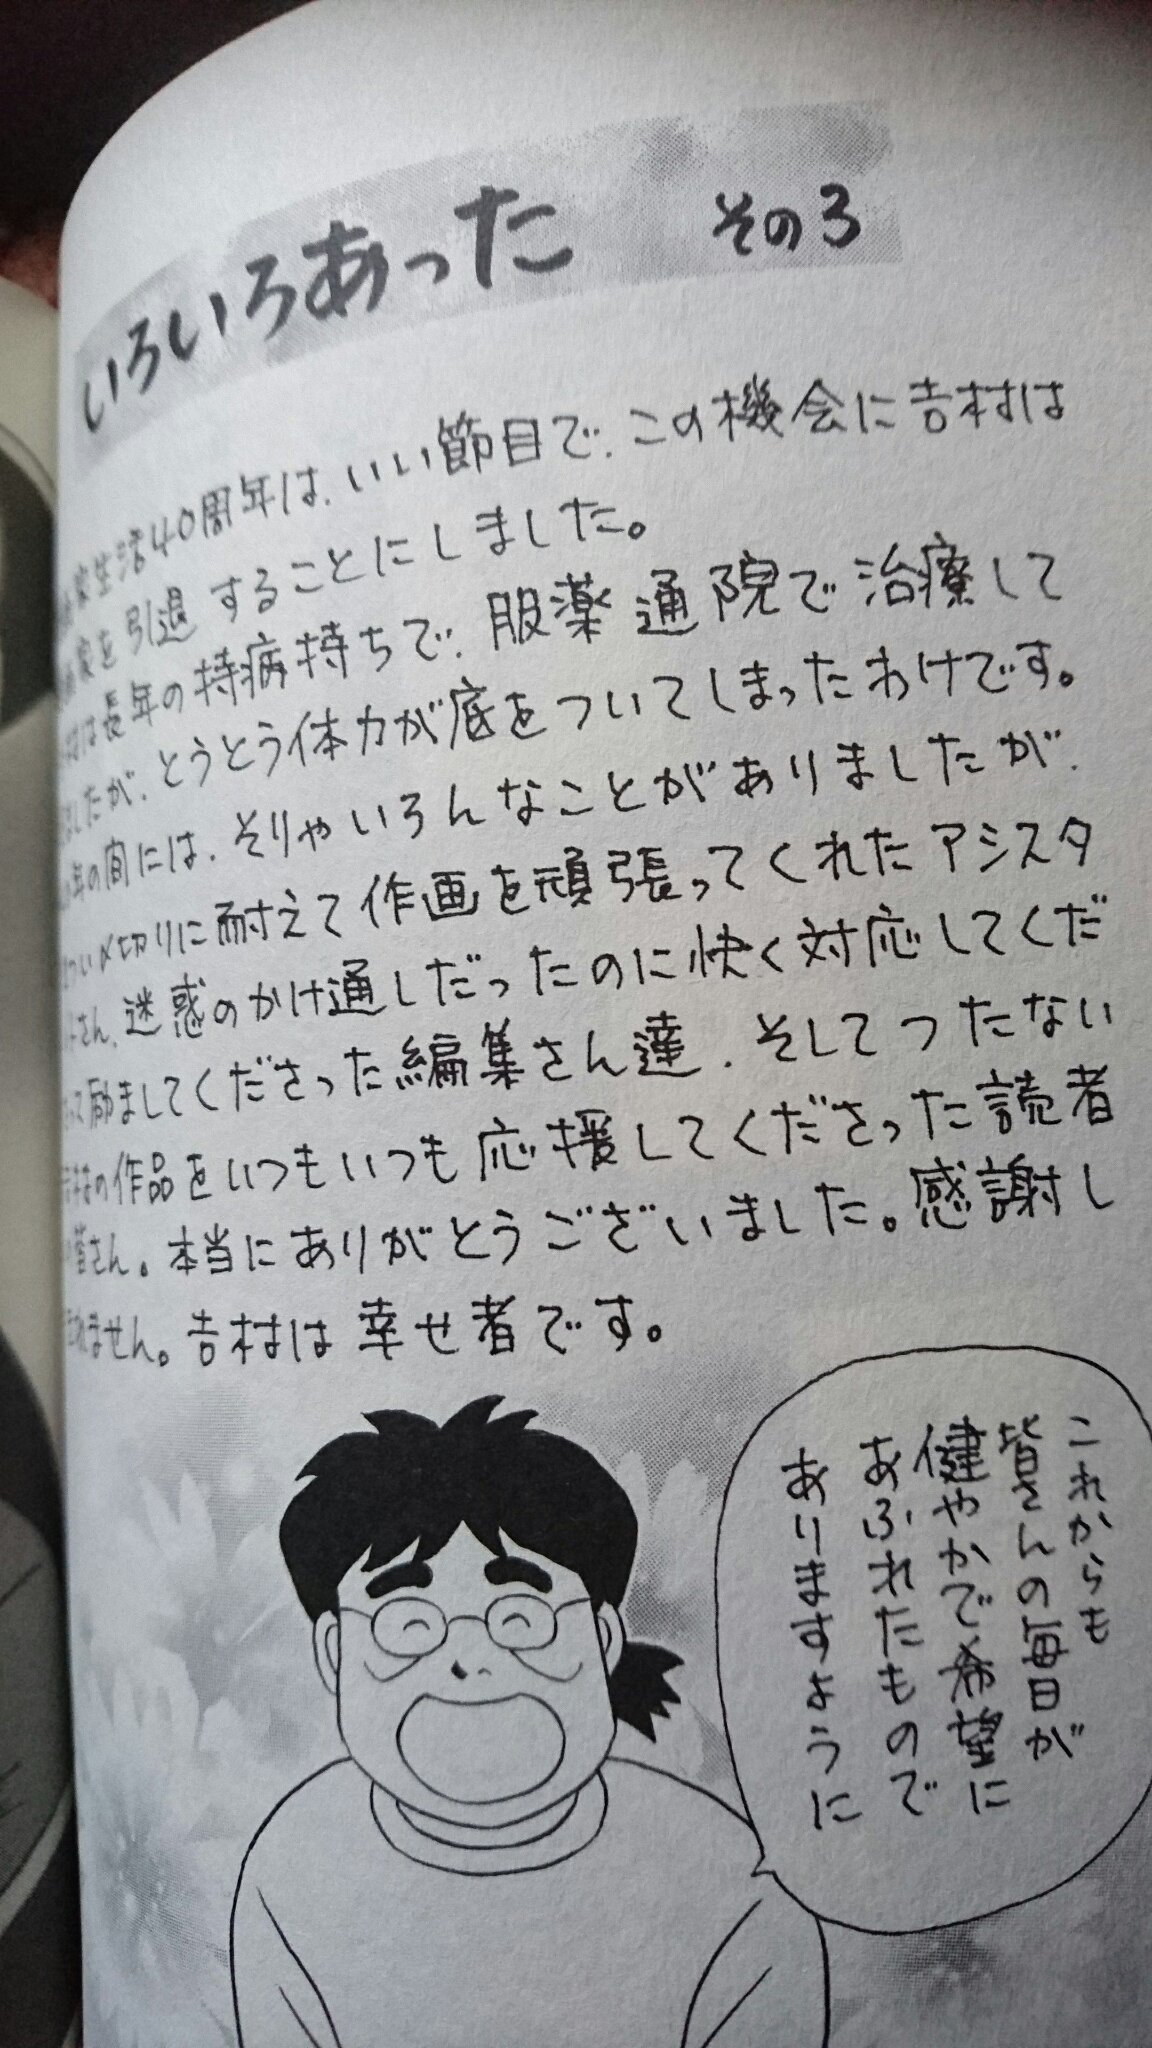 いろいろあった その3
家生活40周年は、いい節目で、この機会に吉村は
家を引退することにしました。
村は長年の持病持ちで、服薬通院で治療して
ましたが、とうとう体力が底をついてしまったわけです。
年の間には、そりゃいろんなことがありましたが、
つい〆切りに耐えて作画を頑張ってくれたアシスタ
トさん、迷惑のかけ通しだったのに快く対応してくだ
さって励ましてくださった編集さん達、そしてつたない
吉村の作品をいつもいつも応援してくださった読者
の皆さん。本当にありがとうございました。感謝し
きれません。吉村は幸せ者です。
これからも
皆さんの毎日が
健やかで希望に
あふれたもので
ありますように